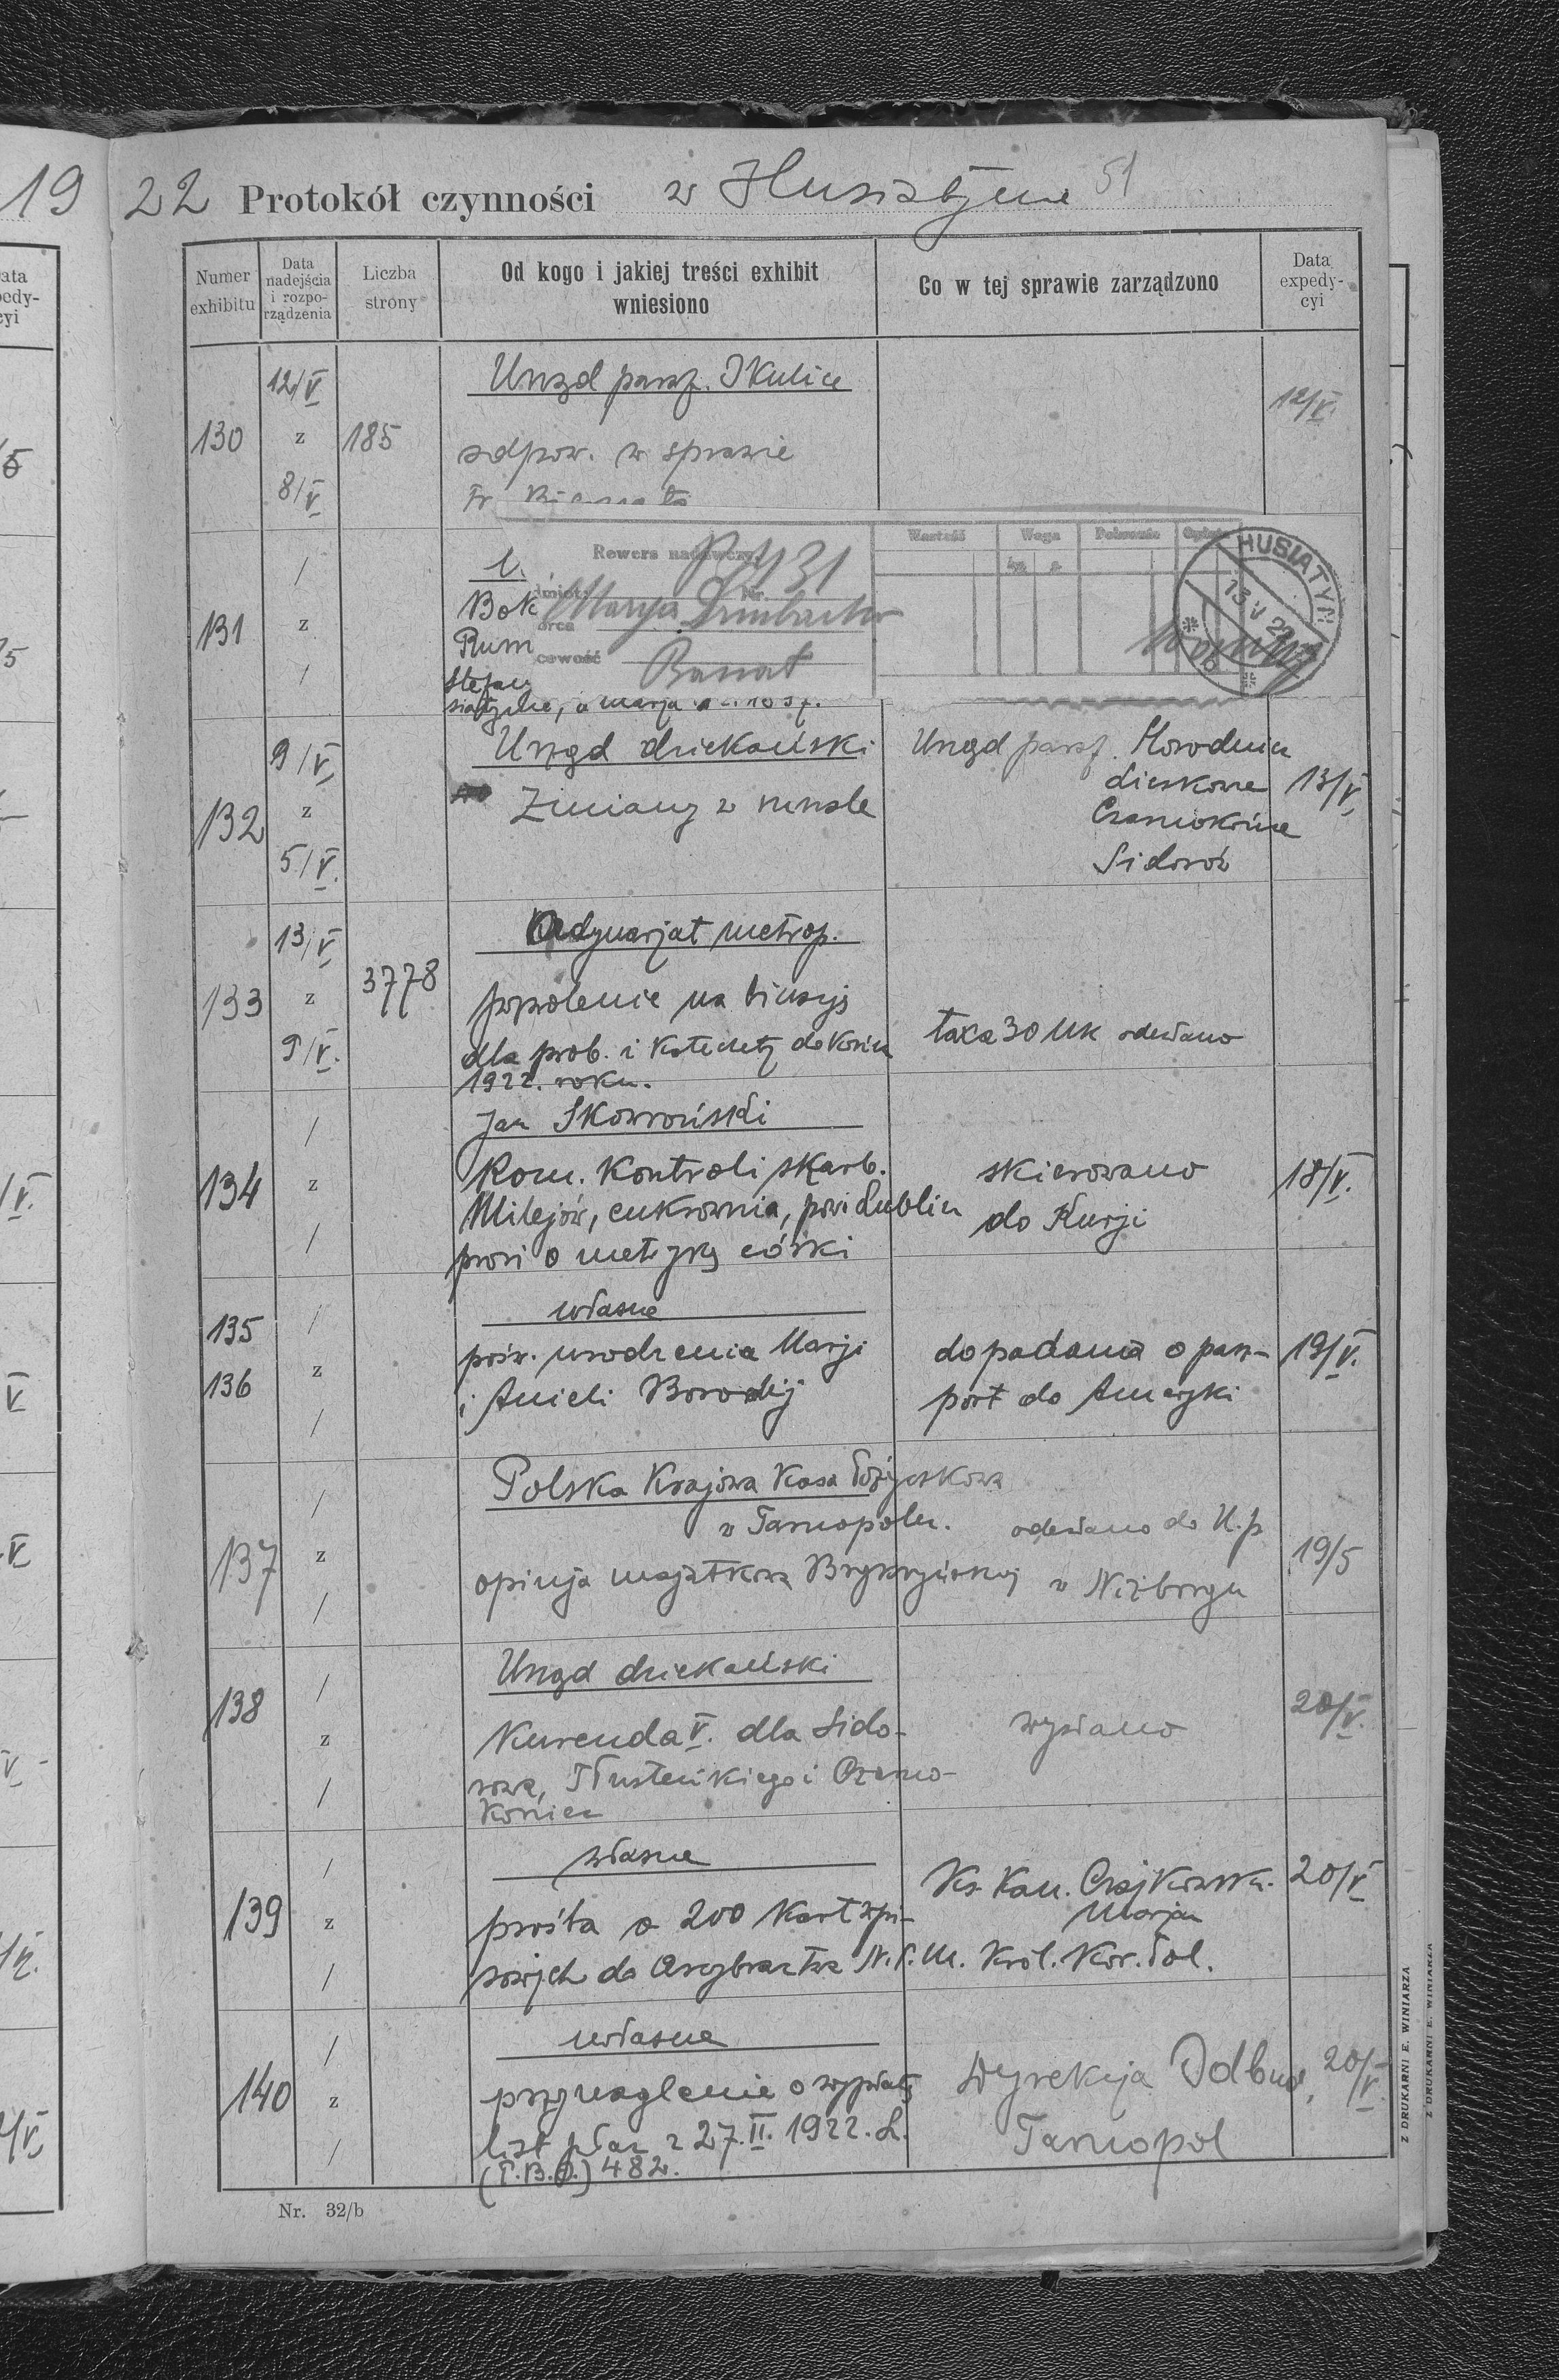 19 22 Protokół czynności w Husiatynie 51
Numer exhibitu
Data nadejścia i rozporządzenia
Liczba strony
Od kogo i jakiej treści exhibit wniesiono
Co w tej sprawie zarządzono
Data expedycyi
Urząd paraf. Skulice
130 12/V z 8/V 185 12/V.
odpow. w sprawie
Fr.
131 / z /
Bok
Rum
Stefan
siatynie, a Marja
Rewers nadawczy
R 431
Nr.
Marya
cowość Banat
Wartość Waga Pobranie
kg g
HUSIATYN
13 V 22
132 9/V z 5/V. 13/V.
Urząd dziekański
Zmiany w
Urząd paraf. Horodnica
Liczkowce
Czarnokońce
Sidorów
133 13/V z 9/V. 3778
Ordynarjat metrop.
pozwolenie na binację
dla prob. i katechety do końca
1922. roku.
taxa 30 Mk odesłano
134 / z / 18/V.
Jan Skowroński
Kom. Kontroli skarb.
Milejów, cukrownia, pow. Lublin
prosi o metrykę córki
skierowano
do Kurji
135
136 / z / 19/V.
własne
pośw. urodzenia Marji
i Anieli Borodij
do podania o pasz-
port do Ameryki
137 / z / 19/5
Polska Krajowa Kasa Pożyczkowa
w Tarnopolu.
opinja majątkowa
odesłano do U. p.
w Niżborgu
138 / z / 20/V.
Urząd dziekański
Kurenda V. dla Sido-
rowa, Tłusteńkiego i Czarno-
koniec
wysłano
139 / z / 20/V
własne
prośba o 200 kart wpi-
sowych do Arcybractwa N. P. M. Król. Kor. Pol.
Ks. Kan. Czajkowski
Marjan
140 / z / 20/V.
własne
przynaglenie o wypłatę
list płac z 27. II. 1922. L.
(P.B.O.) 482.
Dyrekcja Odbud.
Tarnopol
Nr. 32/b
Z DRUKARNI E. WINIARZA
Z DRUKARNI E. WINIARZA